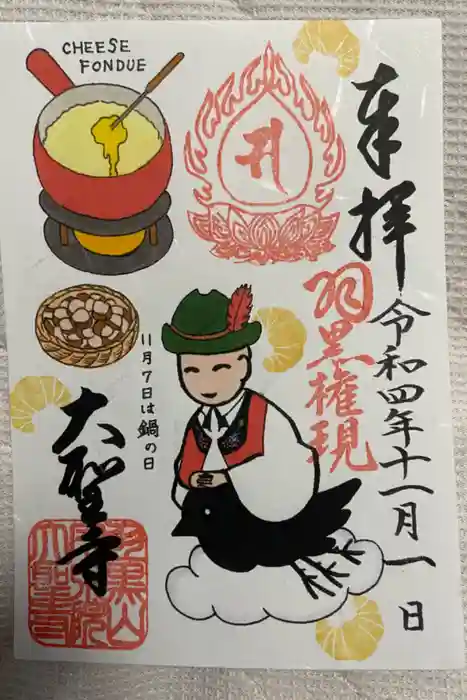 CHEESE
FONDUE
奉拝
令和四年十一月一日
羽黒権現
11月7日は鍋の日
大聖寺